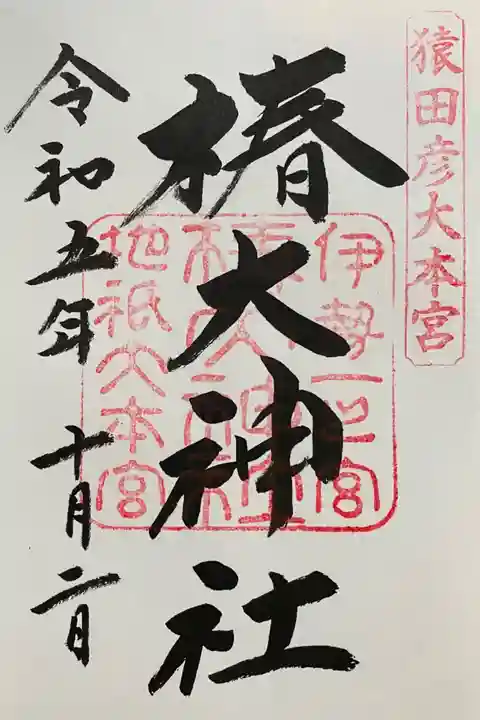 猿田彦大本宮
椿大神社
伊勢一之宮
椿大神社
地祇大本宮
令和五年十月二日